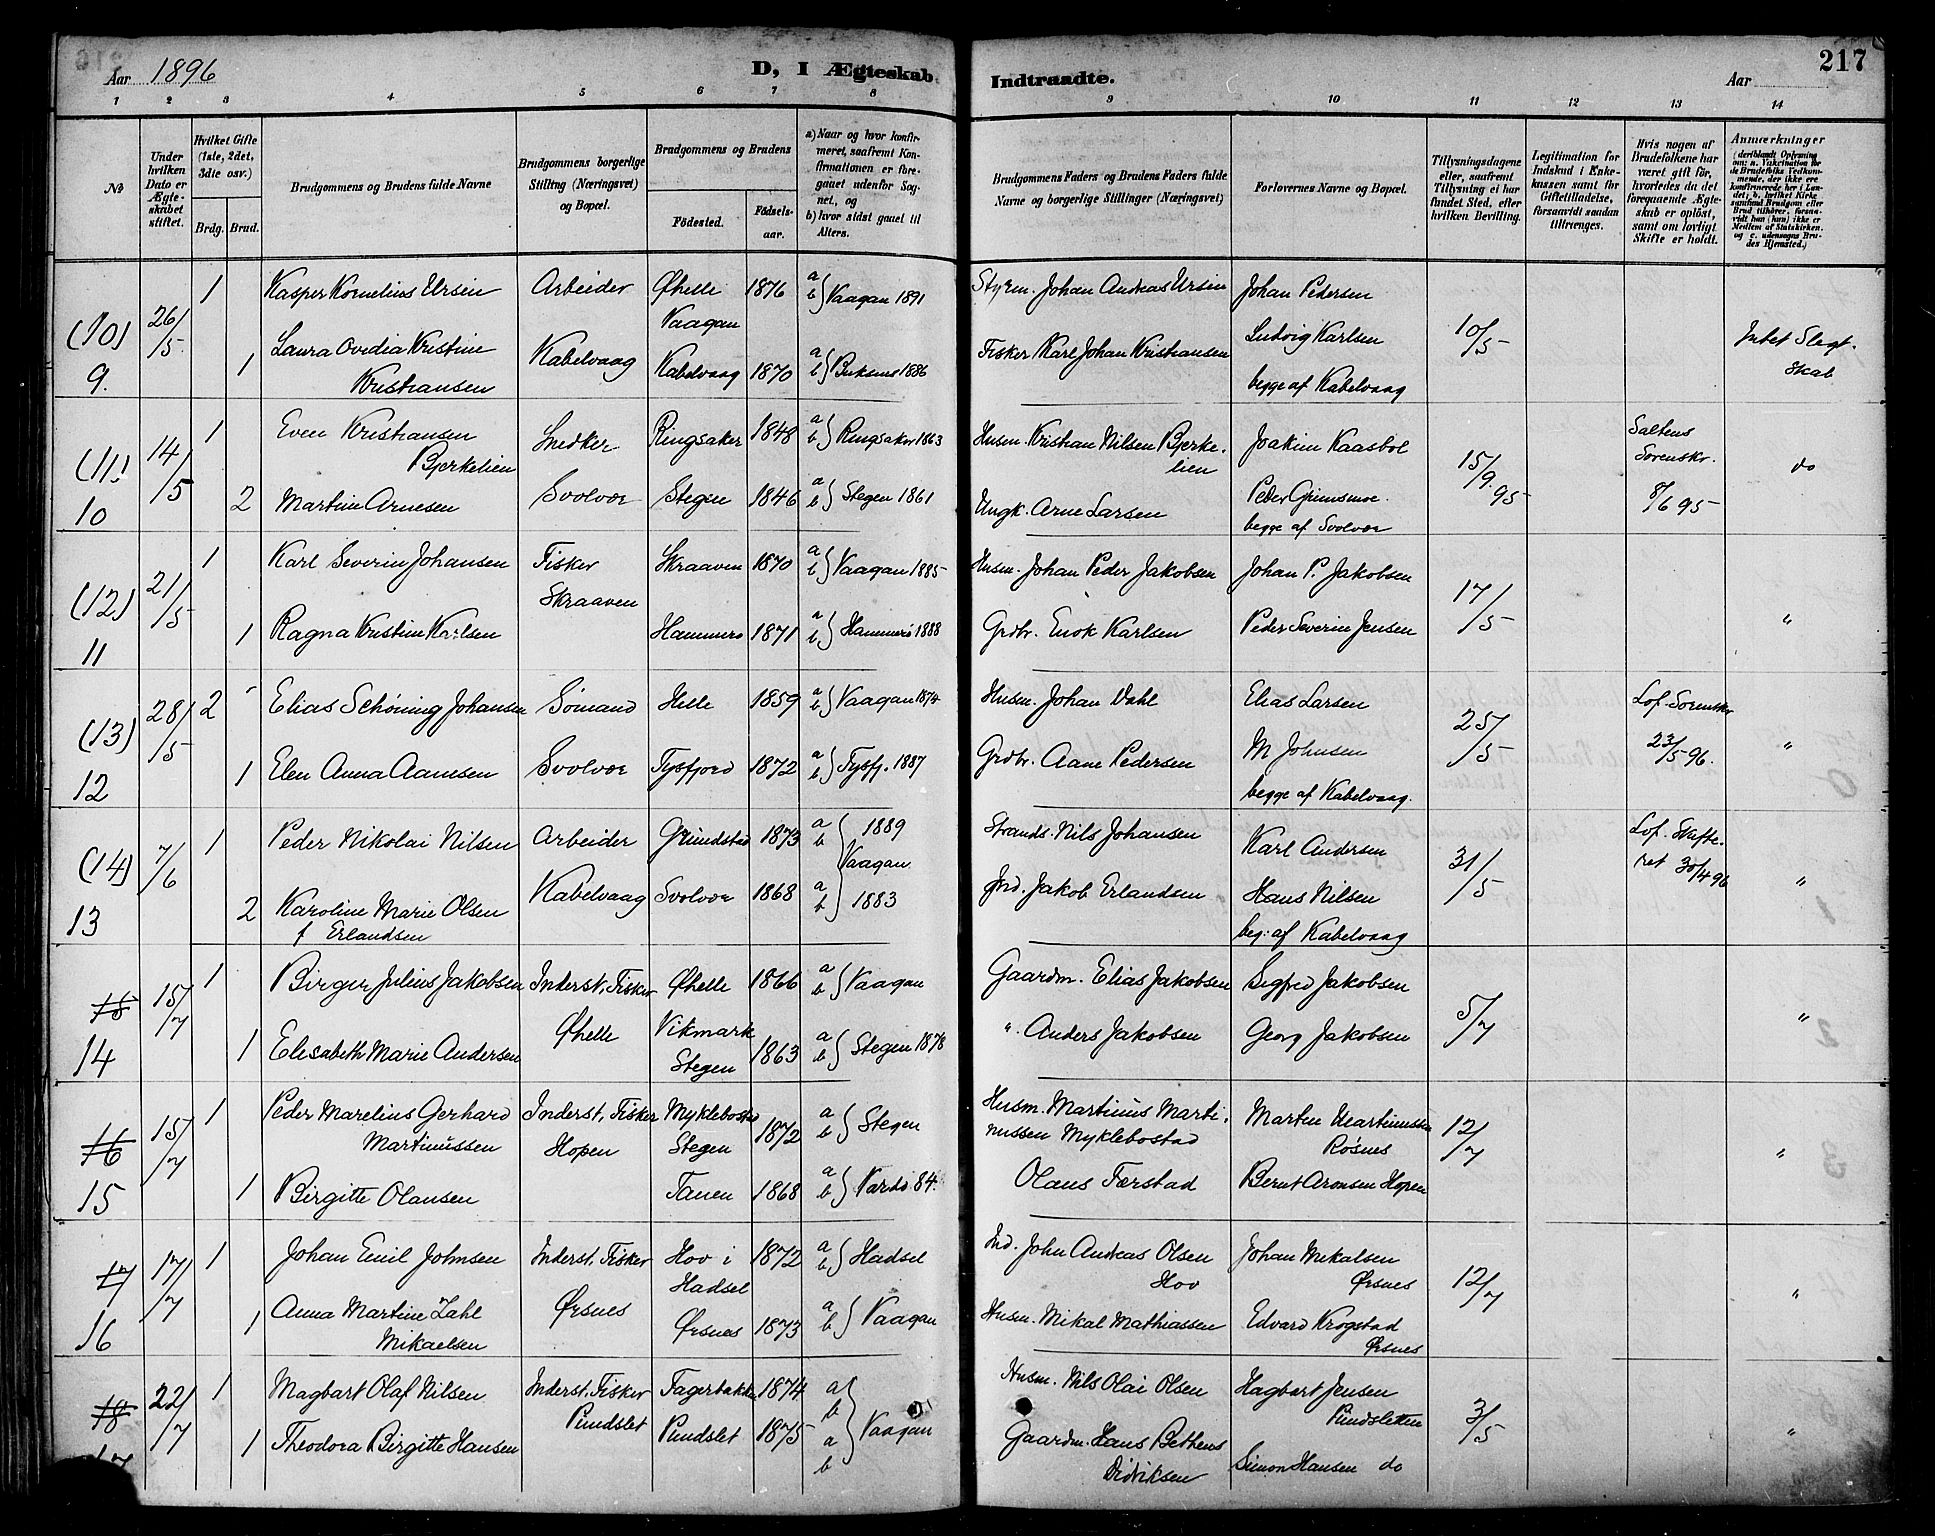 Aar 1896
D, I Ægteskab
Indtraadte.
Aar
217
1 2 3 4 5 6 7 8
9 10 11 12 13 14
No
Under hvilken Dato er Ægteskabet stiftet.
Hvilket Gifte (1ste, 2det, 3die osv.)
Brdg. Brud.
Brudgommens og Brudens fulde Navne
Brudgommens borgerlige Stilling (Næringsvei) og Bopæl.
Brudgommens og Brudens
Fødested.
Fødsels-aar.
a) Naar og hvor konfirmeret, saafremt Konfirmationen er foregaaet udenfor Sognet, og
b) hvor sidst gaaet til Alters.
Brudgommens Faders og Brudens Faders fulde Navne og borgerlige Stillinger (Næringsvei)
Forlovernes Navne og Bopæl.
Tillysningsdagene eller, saafremt Tillysning ei har fundet Sted, efter hvilken Bevilling.
Legitimation for Indskud i Enkekassen samt for Giftetilladelse, forsaavidt saadan tiltrænges.
Hvis nogen af Brudefolkene har været gift før, hvorledes da det foregaaende Ægteskab er opløst, samt om lovligt Skifte er holdt.
Anmærkninger (deriblandt Oplysning om: a. Vakcination for de Brudefolks Vedkommende, der ikke ere konfirmerede her i Landet; b. hvilket Kirkesamfund Brudgom eller Brud tilhører, forsaavidt han (hun) ikke er Medlem af Statskirken. og c. udensogns Brudes Hjemsted.)
(10) 26/5 1 Kasper Kornelius Ursin Arbeider Øhelle 1876 a b } Vaagan 1891 Styrm. Johan Andreas Ursin Johan Pedersen
Vaagan Ludvig Karlsen 10/5 Intet Slegt-
9. 1 Laura Ovedia Kristine Kabelvaag Kabelvaag 1870 a b } Buksnes 1886 Fisker Karl Johan Kristiansen skab
Kristiansen begge af Kabelvaag
(11) 14/5 1 Even Kristiansen Snedker Ringsaker 1848 a b } Ringsaker 1863 Husm. Kristian Nilsen Bjerke- Joakim Kaasbøl 15/9 95 Saltens
Bjerkelien lien Sorenskr. do
10 2 Martine Arnesen Svolvær Stegen 1846 a b } Stegen 1861 Ungk. Arne Larsen Peder Grimsmoe. 8/6 95
begge af Svolvær
(12) 21/5 1 Karl Severin Johansen Fisker Skraaven 1870 a b } Vaagan 1885 Husm. Johan Peder Jakobsen Johan P. Jakobsen 17/5
Skraaven
11 1 Ragna Kristine Karlsen Hammerø 1871 a b } Hammerø 1888 Grdbr. Enok Karlsen Peder Severin Jensen "
(13) 28/5 2 Elias Schøning Johansen Sømand Helle 1859 a b } Vaagan 1874 Husm. Johan Dahl Elias Larsen 25/5 Lof. Sorenskr
12 1 Elen Anna Aanesen Svolvær Tysfjord 1872 a b } Tysfj. 1887 Grdbr. Aane Pedersen M Johnsen 23/5 96. "
begge af Kabelvaag.
(14) 7/6 1 Peder Nikolai Nilsen Arbeider Grimstad 1873 a b } 1889 Strands. Nils Johansen Karl Andersen 31/5 Lof. Skifte-
Vaagan ret 30/4 96
13 2 Karoline Marie Olsen Kabelvaag Svolvær 1868 a b } 1883 Ind. Jakob Erlandsen Hans Nilsen "
f Erlandsen beg: af Kabelvaag
15 15/7 1 Birger Julius Jakobsen Inderst, Fisker Øhelle 1866 a b } Vaagan Gaardm. Elias Jakobsen Sigfred Jakobsen 5/7
Øhelle Vikmark "
14 1 Elisabeth Marie Andersen Stegen 1863 a b } Stegen 1878 ". Anders Jakobsen Georg Jakobsen
16 15/7 1 Peder Marelius Gerhard Inderst, Fisker Myklebostad 1872 a b } Stegen Husm. Martinus Marti- Marten Martinussen 12/7
Martinussen Hopen Stegen nussen Myklebostad Røsnes "
15 1 Birgitte Olausen Tanen 1868 a b } Vardø 84. Olaus Færstad Bernt Aronsen Hopen
17 17/7 1 Johan Emil Johnsen Inderst, Fisker Hov i 1872 a b } Hadsel Ind. John Andreas Olsen Johan Mikalsen 12/7
Hadsel Hov Ørsnes "
16 1 Anna Martine Zahl Ørsnes Ørsnes 1873 a b } Vaagan Husm. Mikal Mathiassen Edvard Krogstad
Mikaelsen Ørsnes
18 22/7 1 Magbart Olaf Nilsen Inderst, Fisker Fagerbakke 1874 a b Husm. Nils Olai Olsen Hagbart Jensen 3/5
Pundslet } Vaagan Pundsletten
17 1 Theodora Birgitte Hansen Pundslet 1875 a b Gaardm. Hans Bethens Simon Hansen do "
Didriksen